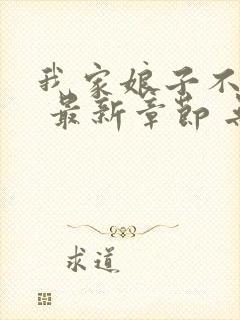 我家娘子不
最新章节
求道